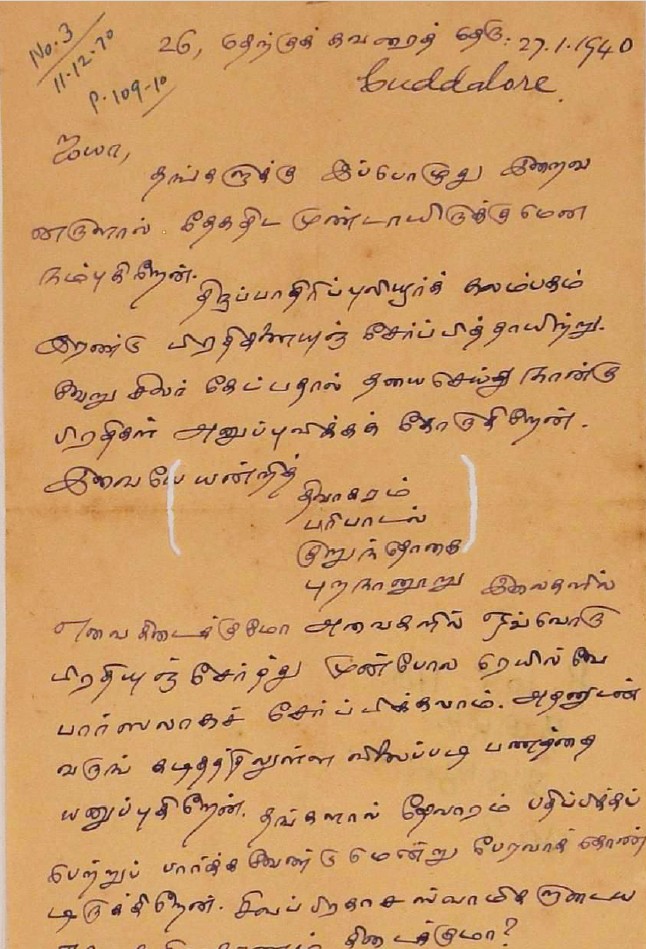 No. 3
11-12-70
P. 109-10
26, தெற்குக் கவரைத் தெரு: 27.1.1940
Cuddalore.
ஐயா,
தங்களுக்கு இப்பொழுது இறைவ
னருளால் தேகதிட முண்டாயிருக்குமென
நம்புகிறேன்.
திருப்பாதிரிப்புலியூர்க் கலம்பகம்
இரண்டு பிரதிகளையுஞ் சேர்ப்பித்தாயிற்று.
வேறு சிலர் கேட்பதால் தயைசெய்து நான்கு
பிரதிகள் அனுப்புவிக்கக் கோருகிறேன்.
இவையேயன்றித்
திவாகரம்
பரிபாடல்
குறுந்தொகை
புறநானூறு இவைகளில்
எவை கிடைக்குமோ அவைகளில் ஒவ்வொரு
பிரதியுஞ்சேர்த்து முன்போல ரெயில்வே
பார்ஸலாகச் சேர்ப்பிக்கலாம். அதனுடன்
வருங் கடிதத்திலுள்ள விலைப்படி பணத்தை
யனுப்புகிறேன். தங்களால் தேவாரம் பதிப்பிக்கப்
பெற்றுப் பார்க்கவேண்டுமென்று பேரவாக் கொண்
டிருக்கிறேன். சிவப்பிரகாச ஸ்வாமிகளுடைய
கிடைக்குமா?